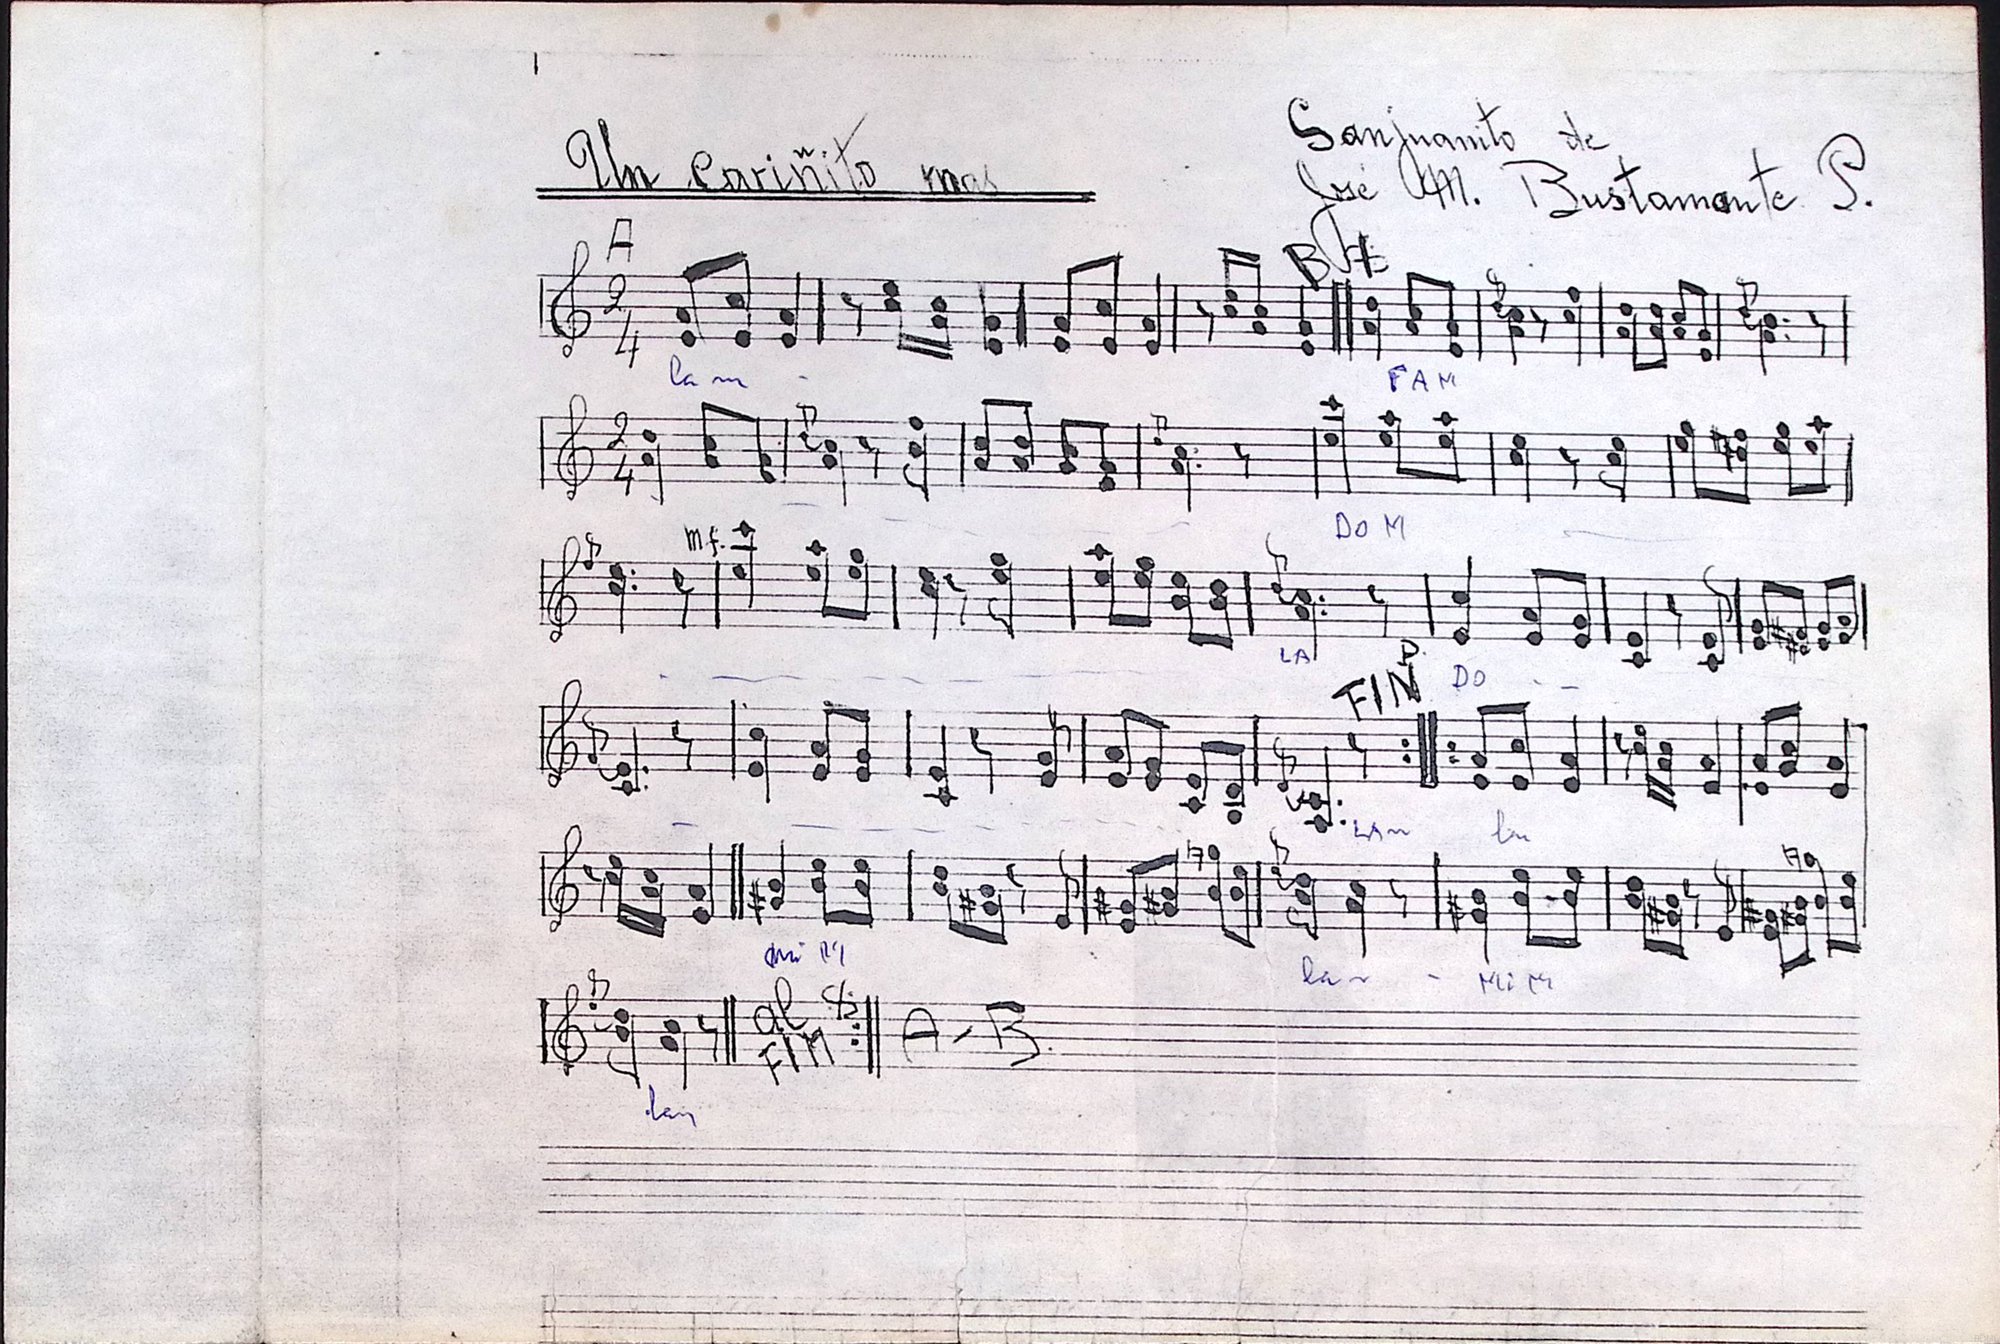 Un Cariñito mas
Sanjuanito de
José M. Bustamante P.
A
B
2
4
lam -
FAM
2
4
DO M
m.f.
LA
DO - -
FIN
P.
LAm
mi M
lam - MiM
al
FIN
A - B.
lam